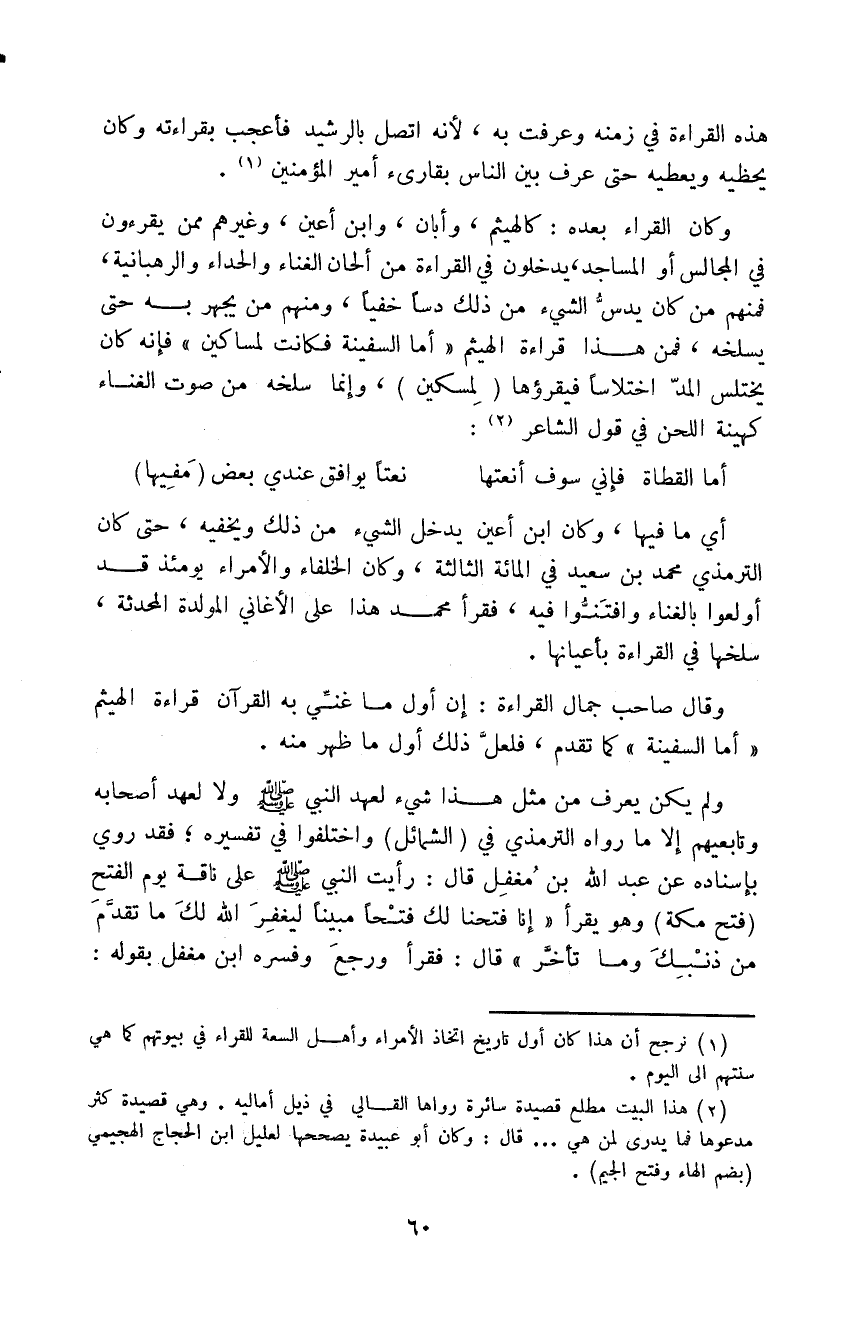 هذه القراءة في زمنه وعرفت به ، لأنه اتصل بالرشيد فأعجب بقراءته وكان
يحظيه ويعطيه حتى عرف بين الناس بقارىء أمير المؤمنين (١) .
وكان القراء بعده : كالهيثم ، وأبان ، وابن أعين ، وغيرهم ممن يقرءون
في المجالس أو المساجد،يدخلون في القراءة من ألحان الغناء والحداء والرهبانية،
فمنهم من كان يدسُّ الشيء من ذلك دساً خفياً ، ومنهم من يجهر بـــه حتى
يسلخه ، فمن هـــذا قراءة الهيثم « أما السفينة فكانت لمساكين » فإنه كان
يختلس المدّ اختلاساً فيقرؤها ( لِمسكين ) ، وإنما سلخه من صوت الغنــاء
كهيئة اللحن في قول الشاعر (٢) :
أما القطاة فإني سوف أنعتها نعتاً يوافق عندي بعض (مَفيها)
أي ما فيها ، وكان ابن أعين يدخل الشيء من ذلك ويخفيه ، حتى كان
الترمذي محمد بن سعيد في المائة الثالثة ، وكان الخلفاء والأمراء يومئذ قـــد
أولعوا بالغناء وافتَنُّوا فيه ، فقرأ محمـــد هذا على الأغاني المولدة المحدثة ،
سلخها في القراءة بأعيانها .
وقال صاحب جمال القراءة : إن أول مــا غنِّي به القرآن قراءة الهيثم
« أما السفينة » كما تقدم ، فلعلَّ ذلك أول ما ظهر منه .
ولم يكن يعرف من مثل هـــذا شيء لعهد النبي ﷺ ولا لعهد أصحابه
وتابعيهم إلا ما رواه الترمذي في (الشمائل) واختلفوا في تفسيره ؛ فقد روي
بإسناده عن عبد الله بن مُغفل قال : رأيت النبي ﷺ على ناقــة يوم الفتح
(فتح مكة) وهو يقرأ « إنا فتحنا لك فتْحاً مبيناً ليغفِرَ الله لكَ ما تقدَّمَ
من ذنْبِكَ ومــا تأخَّر » قال : فقرأ ورجعَ وفسره ابن مغفل بقوله :
(١) نرجح أن هذا كان أول تاريخ اتخاذ الأمراء وأهـــل السعة للقراء في بيوتهم كما هي
سنتهم الى اليوم .
(٢) هذا البيت مطلع قصيدة سائرة رواها القـــالي في ذيل أماليه . وهي قصيدة كثر
مدعوها فما يدرى لمن هي ... قال : وكان أبو عبيدة يصححها لعليل ابن الحجاج الهجيمي
(بضم الهاء وفتح الجيم) .
٦٠